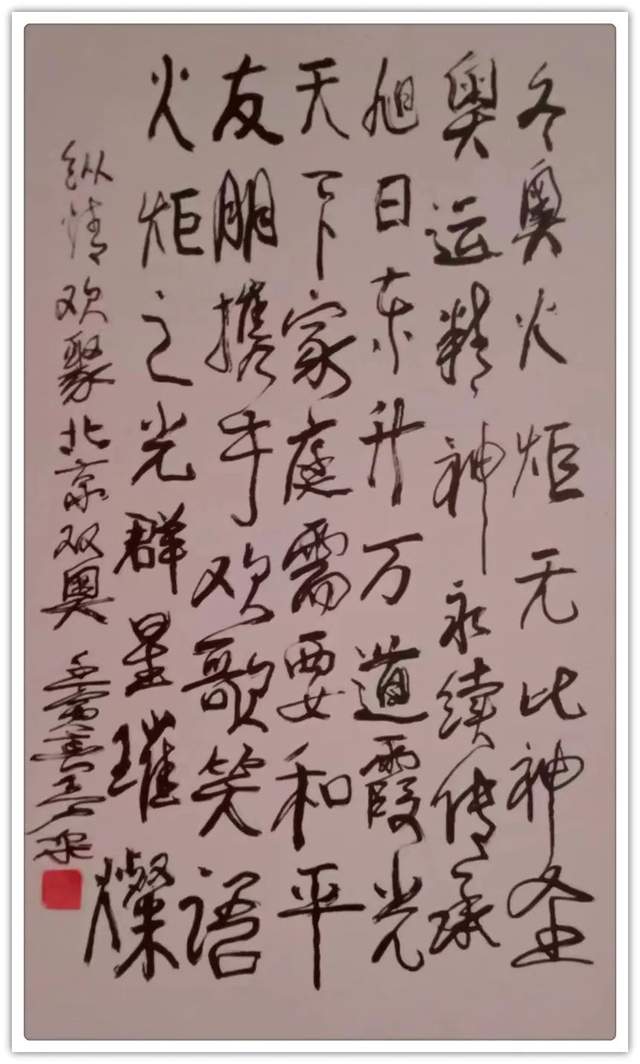 冬奥火炬无比神圣
奥运精神永续传承
旭日东升万道霞光
天下家庭需要和平
友朋携手欢歌笑语
火炬之光群星璀灿
纵情欢聚北京双奥 壬寅